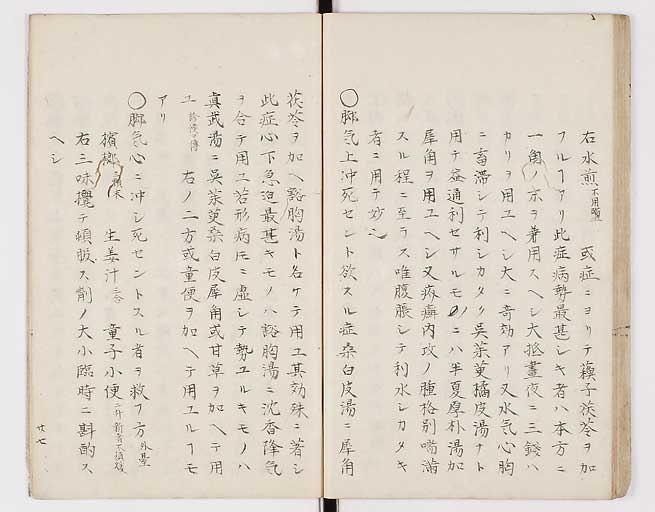 右水煎 不用𤍠 或症ニヨリテ蘓子茯苓ヲ加
フルヿアリ此症病勢最甚シキ者ハ本方ニ
一角ノ末ヲ兼用スヘシ大抵晝夜ニ三錢ハ
カリヲ用ユヘシ大ニ奇効アリ又水氣心胸
ニ畜滞シテ利シカタク呉茱萸橘皮湯ナト
用テ㽷通利セサルモノニハ半夏厚朴湯加
犀角ヲ用ユヘシ又麻痺内攻ノ腫格別喘滿
スル程ニ至ラス唯腹脹シテ利水シカタキ
者ニ用テ妙也
〇脚氣上冲死セント欲スル症桒白皮湯ニ犀角
茯苓ヲ加ヘ豁胸湯ト名ケテ用ユ其効殊ニ著シ
此症心下急迫最甚キモノハ豁胸湯ニ沈香降氣
ヲ合テ用ユ若形病圧ニ虚シテ勢ユルキモノハ
真武湯ニ呉茱萸桒白皮犀角或甘草ヲ加ヘテ用
ユ 右ノ二方或童便ヲ加ヘテ用ユルヿモ
アリ
〇脚氣心ニ冲シ死セントスル者ヲ救フ方 外臺
檳榔 末 生姜汁 三合 童子小便 二升新者不煖
右三味攪テ頓服ス劑ノ大小臨時ニ斟酌ス
ヘシ
廿七